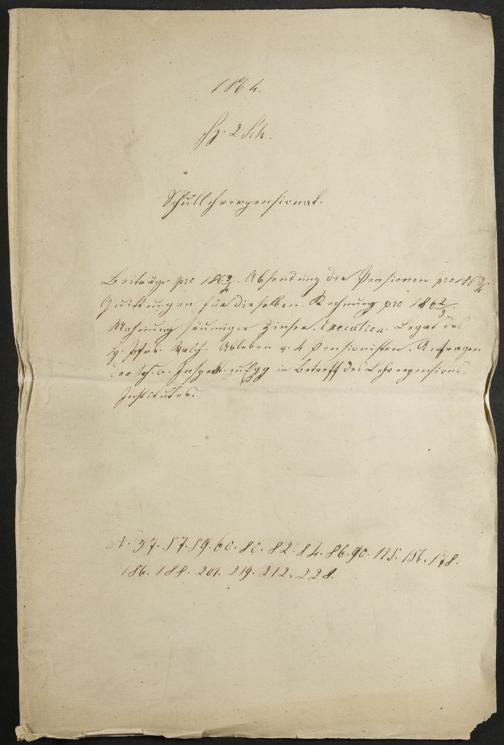 1864.
2 Sch.
Schullehrerpensionat.
Beiträge pro 1863/4. Absendung der Pensionen pro 1863/4
Quittungen für dieselben. Rechnung pro 1862/3.
Mahnung säumiger Zinser. Execution. Legat des
H. Pfrs. Ableben v. 4 Pensionisten. Anfragen
der Insp. zu Egg in Betreff des Lehrerpensions-
Institutes.
37. 57. 59. 60. 80. 82. 84. 86. 90. 115. 156. 178.
186. 188. 201. 219. 212. 228.